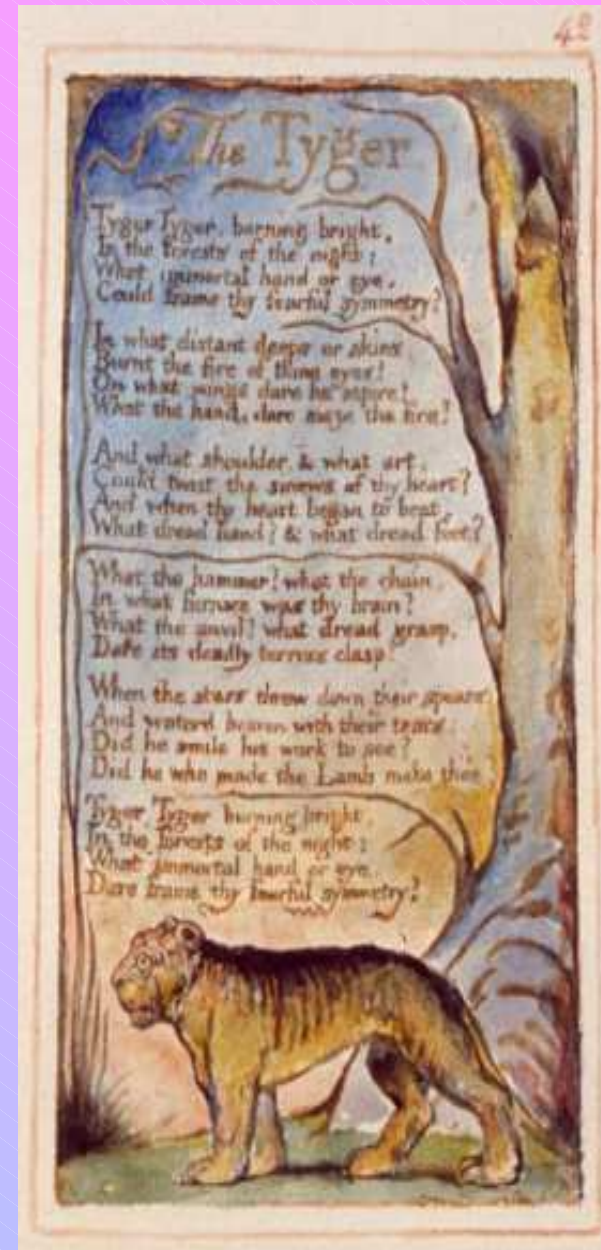 42
The Tyger
Tyger Tyger, burning bright,
In the forests of the night;
What immortal hand or eye,
Could frame thy fearful symmetry?
In what distant deeps or skies
Burnt the fire of thine eyes?
On what wings dare he aspire?
What the hand, dare seize the fire?
And what shoulder, & what art,
Could twist the sinews of thy heart?
And when thy heart began to beat,
What dread hand? & what dread feet?
What the hammer? what the chain,
In what furnace was thy brain?
What the anvil? what dread grasp,
Dare its deadly terrors clasp!
When the stars threw down their spears
And water'd heaven with their tears:
Did he smile his work to see?
Did he who made the Lamb make thee
Tyger Tyger burning bright,
In the forests of the night:
What immortal hand or eye,
Dare frame thy fearful symmetry?